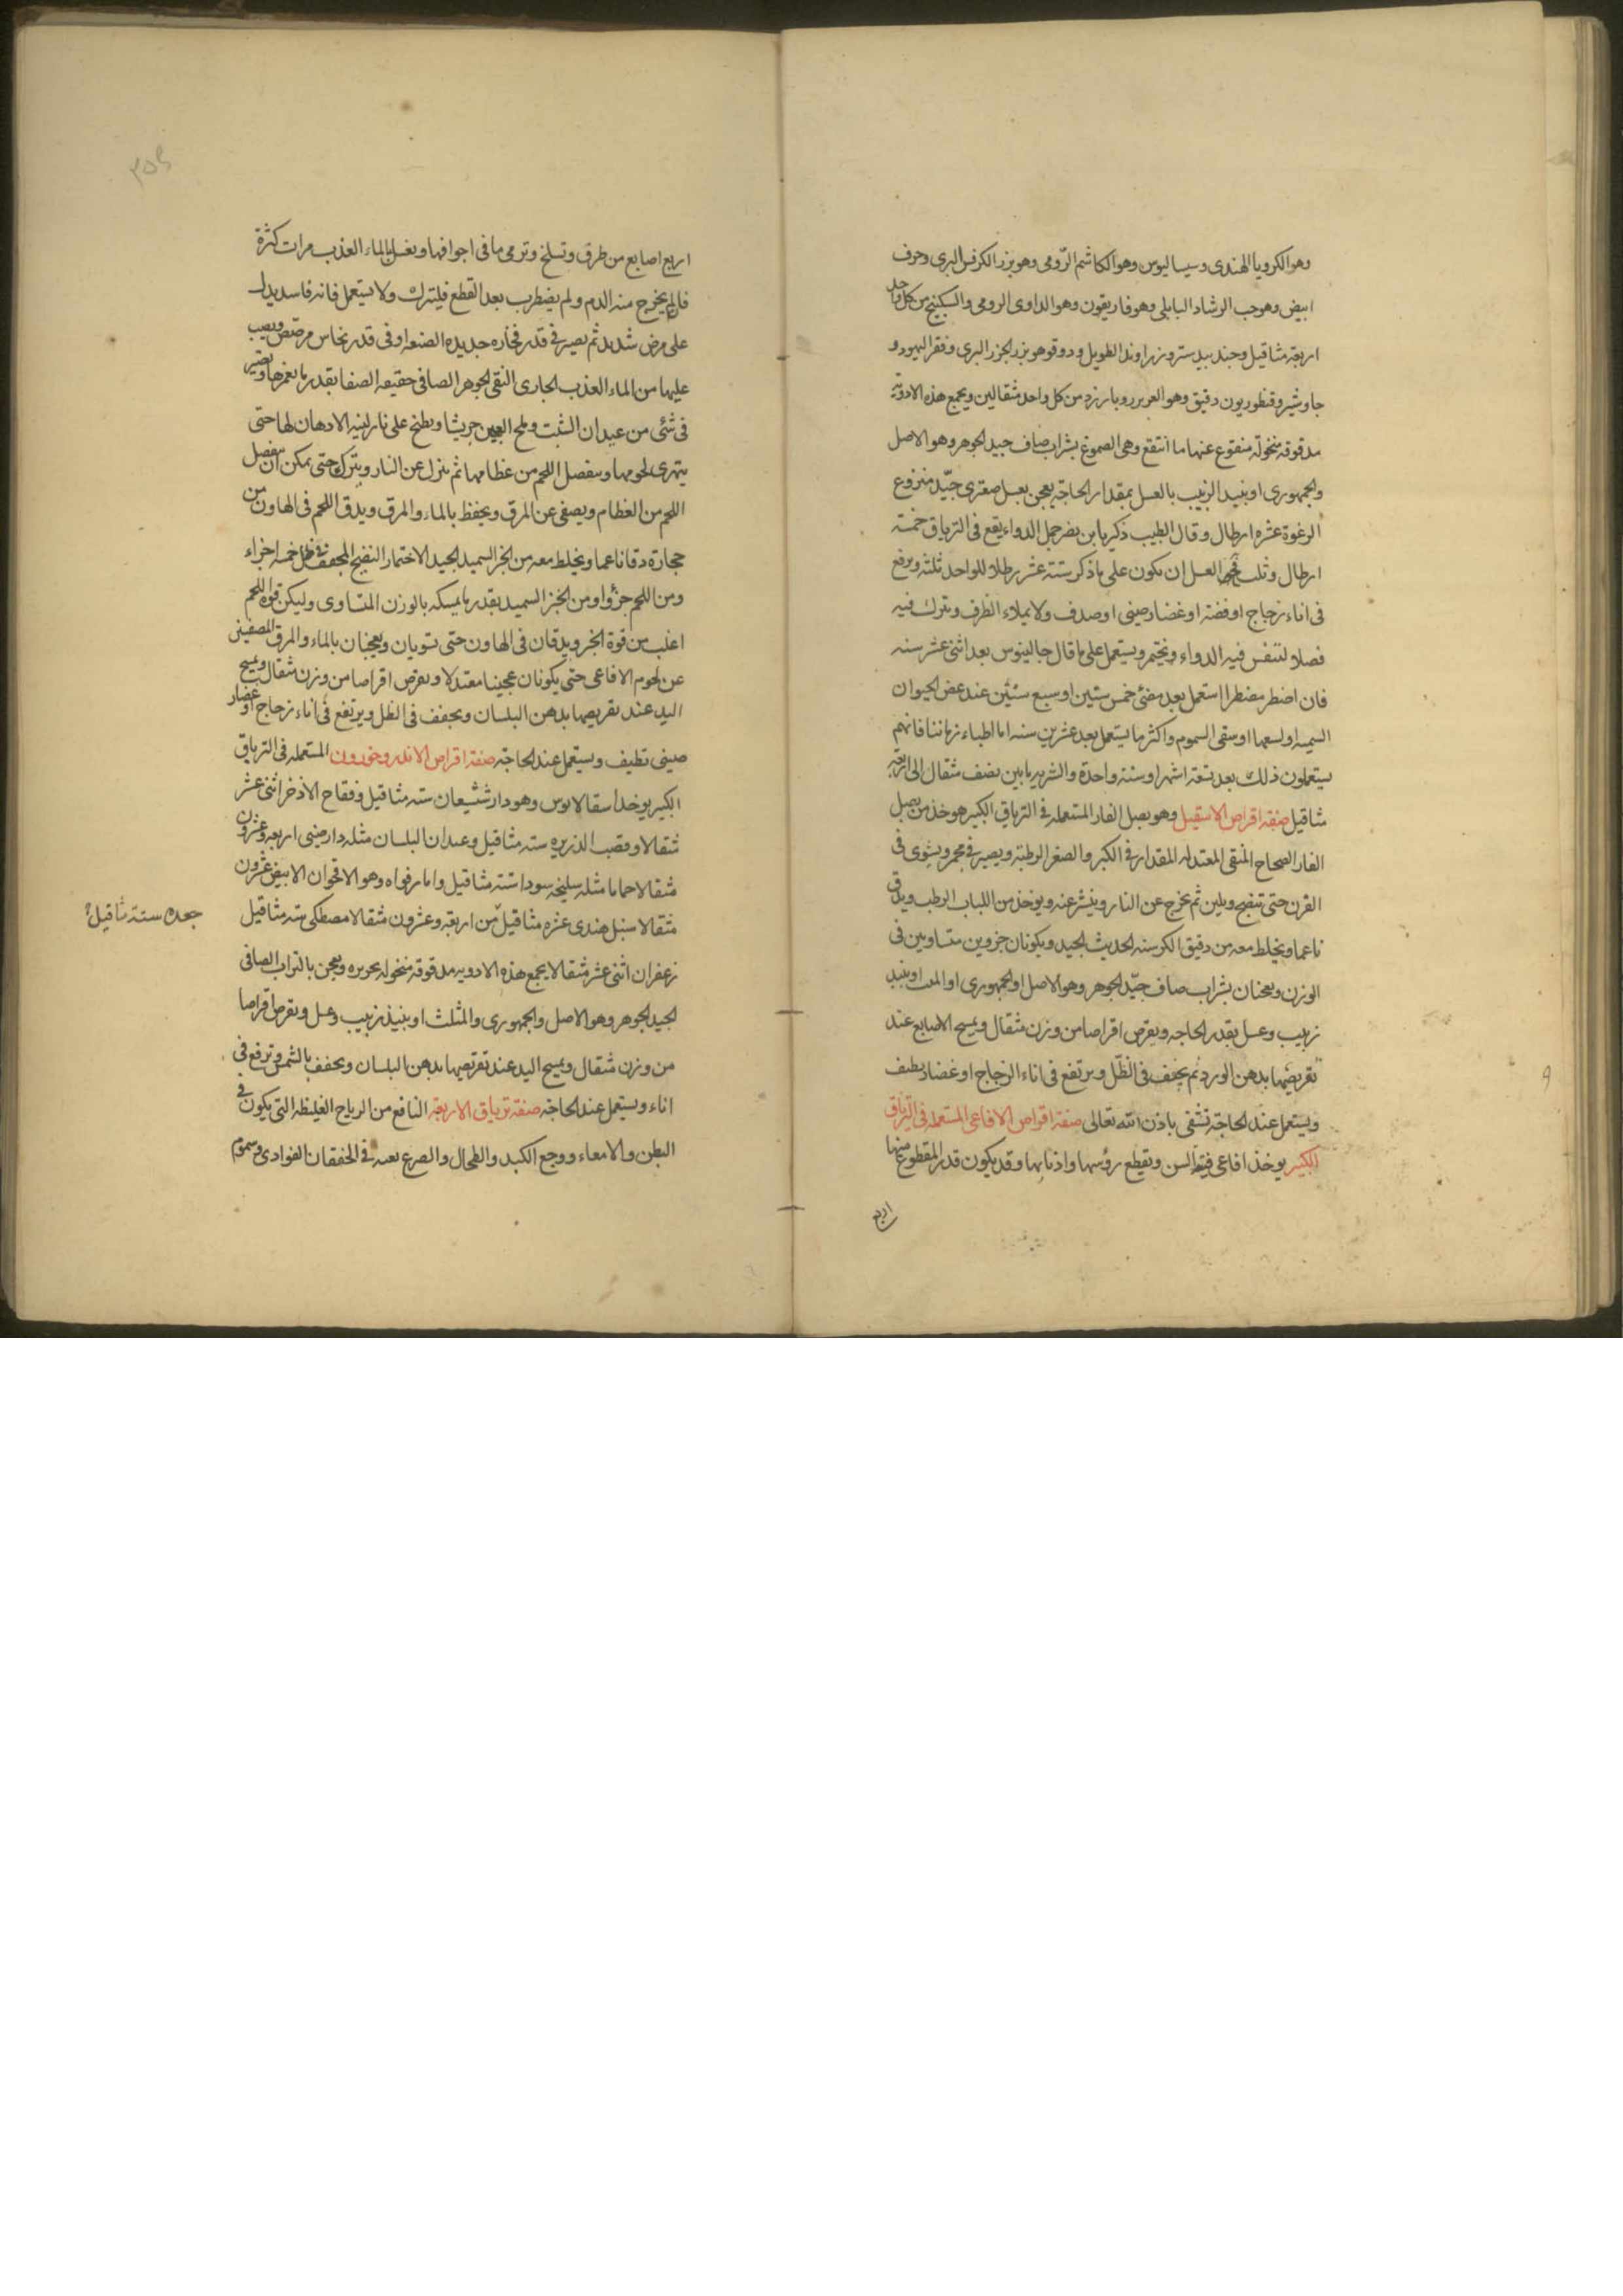 وهو الكرويا الهندى وسيساليوس وهو الكاشم الرّومى وهو بزر الكرفس البرى وحرف
ابيض وهو حب الرشاد البابلى وهوفاريقون وهو الداوى الرومى والسكبينج من كل واحد
اربعة مثاقيل وجندبيدستر وزراوند الطويل ودوقو هو بزر الجزر البرى وقفر اليهود و
جاوشير وقنطوريون دقيق وهو وبارزد من كل واحد مثقالين ويجمع هذه الادوية
مدقوقه منخولة منقوع عنها ما انتقع وهى الصموغ بشراب صاف جيد الجوهر وهو الاصل
والجمهورى او نبيد الزبيب بالعسل بمقدار الحاجة يعجن بعسل صعترى جيّد منزوع
الرغوة عشره ارطال وقال الطبيب ذكريا بن جمل الدواء يقع فى الترياق خمسة
ارطال وثلث العسل ان يكون على ما ذكر ستة عشر رطلا للواحد ثلثة ويرفع
فى اناء زجاج او فضة او غضار صينى او صدف ولا يملاء الظرف ويترك فيه
فضلا لتنفس فيه الدواء ويختم ويستعمل على ما قال جالينوس بعد اثنى عشر سنه
فان اضطر مضطر استعمل بعد مضى خمس سنين او سبع سنين عند عض الحيوان
السميه او لسعها او سقى السموم واكثر ما يستعمل بعد عشرين سنه اما اطباء زماننا فانهم
يستعملون ذلك بعد تسعة اشهر او سنة واحدة والشربه ما بين نصف مثقال الى اربعة
مثاقيل صفة اقراص الاسقيل وهو بصل الفار المستعمله فى الترياق الكبير هو خذ من بصل
الفار الصحاح المنقى المعتدله المقدار فى الكبر والصغر الرطبة ويصير فى مجمر ويشوى فى
الفرن حتى تنضج ويلين ثم يخرج عن النار ويقشر عنه ويوخذ من اللباب الرطب ويدق
ناعما ويخلط معه من دقيق الكرسنه الحديث الجيد ويكونان جزوين متساويين فى
الوزن ويعجنان بشراب صاف جيّد الجوهر وهو الاصل او الجمهورى او المثلث او بنبيد
زبيب وعسل بقدر الحاجه ويقرص اقراصا من وزن مثقال ويمسح الاصابع عند
تقريضها بدهن الورد ثم يجفف فى الظّل ويرتفع فى اناء الزجاج او غضار نظيف
ويستعمل عند الحاجة تشفى باذن الله تعالى صفة اقراص الافاعى المستعمله فى الترياق
الكبير يوخذ افاعى فتية السن ويقطع رؤسها واذنابها وقد يكون قدر المقطوع منها
اربع
اربع اصابع من طرق وتسلخ وترمى ما فى اجوافها ويغسل بالماء العذب مرات كثرة
فالم يخرج منه الدم ولم يضطرب بعد القطع فليترك ولا يستعمل فانه فاسد يدل
على مرض شديد ثم يصير فى قدر فخاره جديده الصنعه او فى قدر نحاس مرصّص ويصب
عليها من الماء العذب الجارى النقى الجوهر الصافى حقيقه الصفا بقدر ما يغمرها ويصير
فى شئى من عيدان الشبت وملح العجين جريشا ويطبخ على نار لينه الادهان لها حتى
يتهرى لحومها وينفصل اللحم من عظامها ثم ينزل عن النار ويترك حتى يمكن ان ينفصل
اللحم من العظام ويصفى عن المرق ويحفظ بالماء والمرق ويدق اللحم فى الهاون من
حجارة دقا ناعما ويخلط معه من الخبز السميد الجيد الاختمار النضيج المجفف فى ظل خمسه اجزاء
ومن اللحم جزؤا ومن الخبز السميد بقدر ما يمسكه بالوزن المتساوى وليكن قوه اللحم
اغلب من قوة الخبز ويدقان فى الهاون حتى تسويان ويعجنان بالماء والمرق المصفيين
عن لحوم الافاعى حتى يكونان عجينا معتدلا ويقرص اقراصا من وزن مثقال ويمسح
اليد عند تقريصها بدهن البلسان ويجفف فى الظل ويرتفع فى اناء زجاج او غضار
صينى نظيف ويستعمل عند الحاجة صفة اقراص الاندروخورون المستعمله فى الترياق
الكبير يوخذ اسقالابوس وهو دارششيعان سته مثاقيل وفقاح الاذخر اثنى عشر
مثقالا وقصب الذريره سته مثاقيل وعيدان البلسان مثله دارصينى اربعه وعشرون
مثقالا حماما مثله سليخه سودا سته مثاقيل وامارفواه وهو الاقحوان الابيض عشرون
مثقالا سنبل هندى عشره مثاقيل مّن اربعة وعشرون مثقالا مصطكى سته مثاقيل
جعده ستة مثاقيل
زعفران اثنى عشر مثقالا يجمع هذه الادويه مدقوقه منخوله بحريره ويعجن بالشراب الصافى
الجيد الجوهر وهو الاصل والجمهورى والمثلث او بنبيذ زبيب وعسل ويقرص اقراصا
من وزن مثقال ويمسح اليد عند تقرتصها بدهن البلسان ويجفف بالشمس وترفع فى
اناء ويستعمل عند الحاجة صفة ترياق الاربعة النافع من الرياح الغليظه التى يكون فى
البطن والامعاء ووجع الكبد والطحال والصرع فى الخفقان الفوادى وسموم